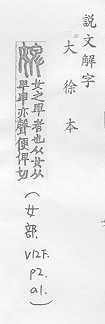 説文解字
大徐本
婢
女之卑者也从女从
卑卑亦聲便俾切
(女部. V12下. p2. a1.)